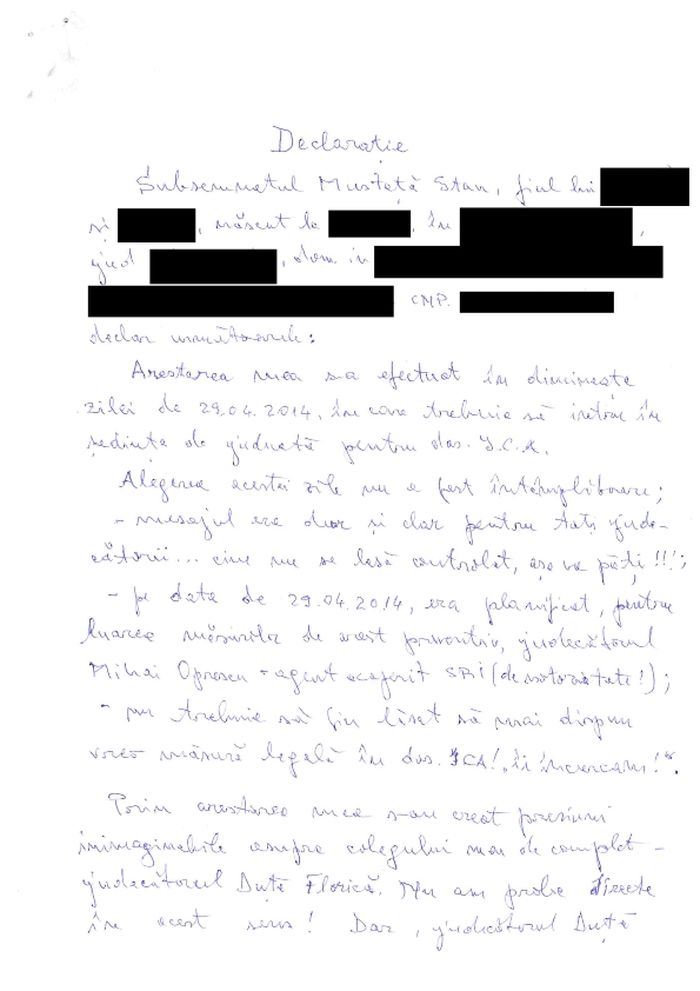 Declarație
Subsemnatul Mustață Stan, fiul lui
și , născut la , în ,
jud , dom în
CNP.
declar următoarele:
Arestarea mea s-a efectuat în dimineața
zilei de 29.04.2014, în care trebuia să intrăm în
ședința de judecată pentru dos. I.C.A.
Alegerea acestei zile nu a fost întâmplătoare;
- mesajul era dur și clar pentru toți jude-
cătorii... cine nu se lasă controlat, așa va păți !!!;
- pe data de 29.04.2014, era planificat, pentru
luarea măsurilor de arest preventiv, judecătorul
Mihai Oprescu - agent acoperit SRI (de notorietate!);
- nu trebuia să fiu lăsat să mai dispun
vreo măsură legală în dos. ICA! „îi încurcam!".
Prin arestarea mea s-au creat presiuni
inimaginabile asupra colegului meu de complet -
judecătorul Duță Florică. Nu am probe directe
în acest sens! Dar, judecătorul Duță